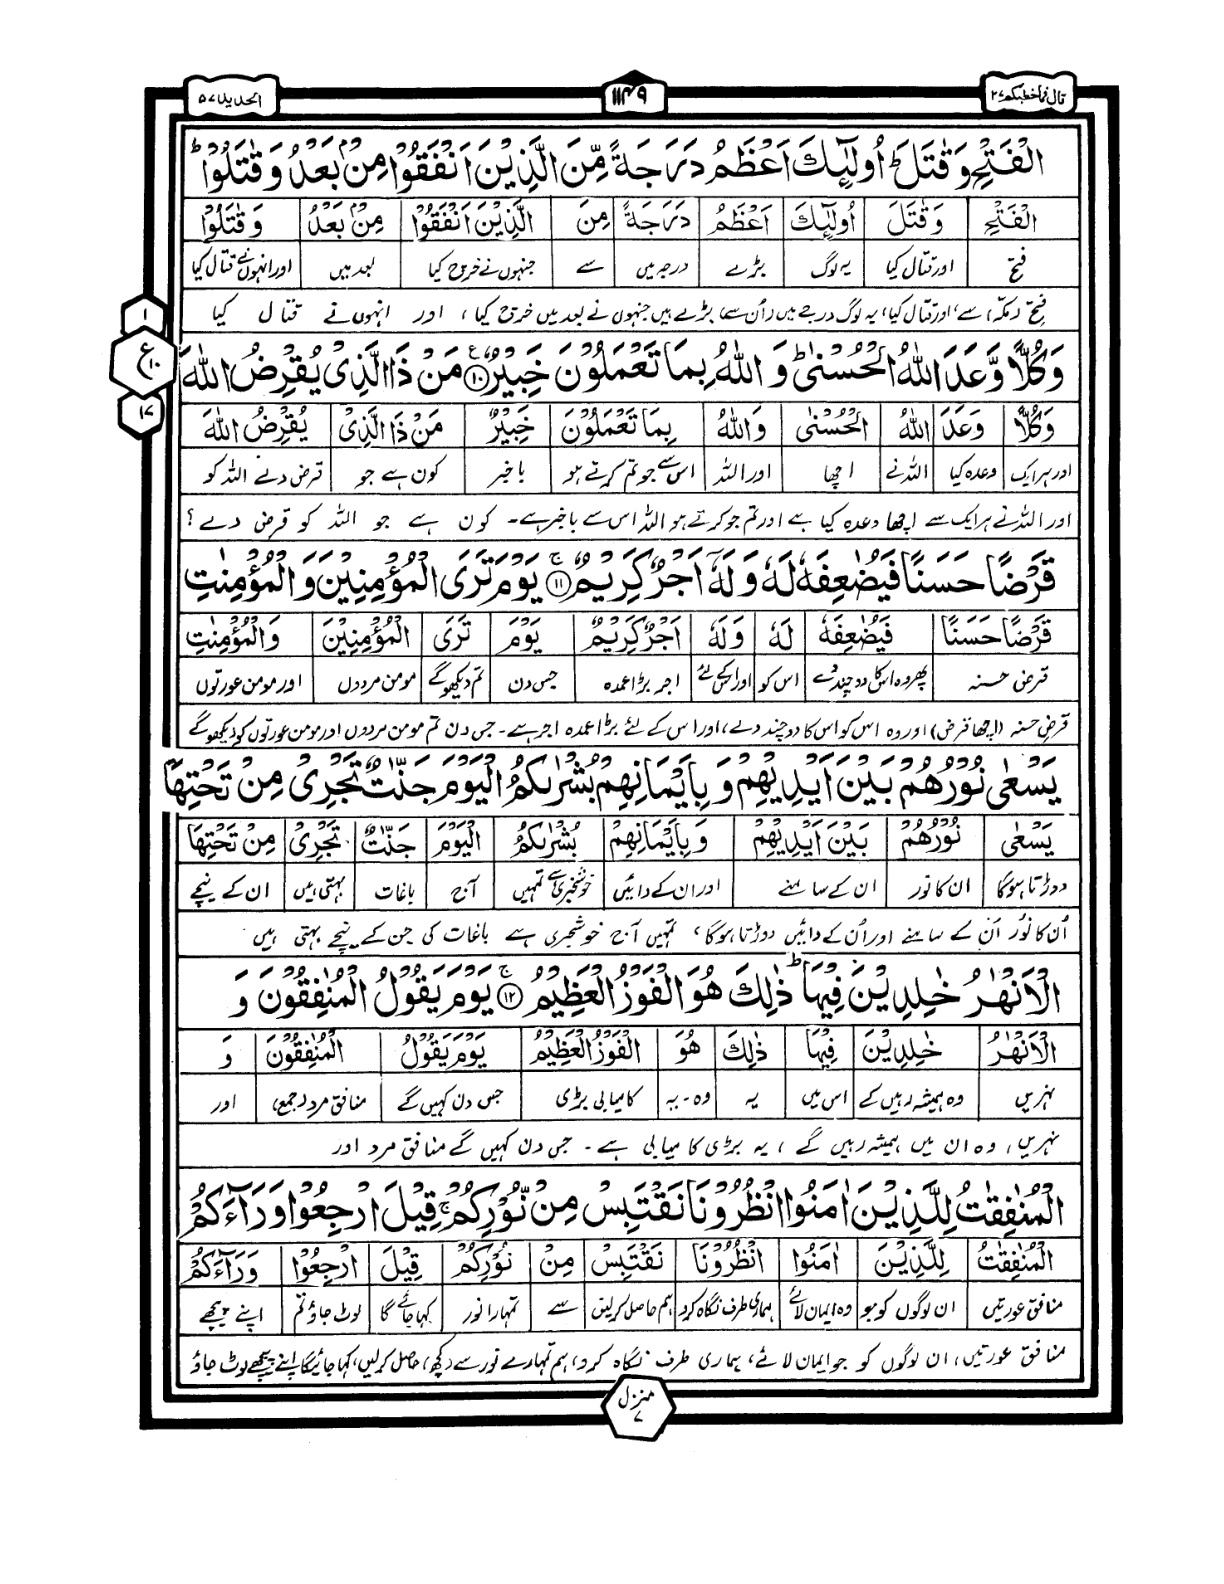 قال فما خطبکم ۲۷
۱۱۴۹
الحدید ۵۷
الْفَتْحِ وَ قٰتَلَ ؕ اُولٰٓئِكَ اَعْظَمُ دَرَجَةً مِّنَ الَّذِیْنَ اَنْفَقُوْا مِنْۢ بَعْدُ وَ قٰتَلُوْا ؕ
الْفَتْحِ وَ قٰتَلَ اُولٰٓئِكَ اَعْظَمُ دَرَجَةً مِّنَ الَّذِیْنَ اَنْفَقُوْا مِنْۢ بَعْدُ وَ قٰتَلُوْا
فتح اور قتال کیا یہ لوگ بڑے درجہ میں سے جنہوں نے خرچ کیا بعد میں اور انہوں نے قتال کیا
فتح (مکہ) سے، اور قتال کیا، یہ لوگ درجے میں (اُن سے) بڑے ہیں جنہوں نے بعد میں خرچ کیا، اور انہوں نے قتال کیا
وَ كُلًّا وَّعَدَ اللّٰهُ الْحُسْنٰی ؕ وَ اللّٰهُ بِمَا تَعْمَلُوْنَ خَبِیْرٌ ۧ۱۰ مَنْ ذَا الَّذِیْ یُقْرِضُ اللّٰهَ
۱
ع
۱۰
۱۷
وَ كُلًّا وَّعَدَ اللّٰهُ الْحُسْنٰی وَ اللّٰهُ بِمَا تَعْمَلُوْنَ خَبِیْرٌ مَنْ ذَا الَّذِیْ یُقْرِضُ اللّٰهَ
اور ہر ایک وعدہ کیا اللہ نے اچھا اور اللہ اس سے جو تم کرتے ہو باخبر کون ہے جو قرض دے اللہ کو
اور اللہ نے ہر ایک سے اچھا وعدہ کیا ہے اور تم جو کرتے ہو اللہ اس سے باخبر ہے۔ کون ہے جو اللہ کو قرض دے؟
قَرْضًا حَسَنًا فَیُضٰعِفَهٗ لَهٗ وَ لَهٗۤ اَجْرٌ كَرِیْمٌ ۚ۱۱ یَوْمَ تَرَی الْمُؤْمِنِیْنَ وَ الْمُؤْمِنٰتِ
قَرْضًا حَسَنًا فَیُضٰعِفَهٗ لَهٗ وَ لَهٗ اَجْرٌ كَرِیْمٌ یَوْمَ تَرَی الْمُؤْمِنِیْنَ وَ الْمُؤْمِنٰتِ
قرض حسنہ پھر وہ اس کا دو چند دے اس کو اور اس کے لئے اجر بڑا عمدہ جس دن تم دیکھو گے مومن مردوں اور مومن عورتوں
قرضِ حسنہ (اچھا قرض) اور وہ اس کو اس کا دو چند دے، اور اس کے لئے بڑا عمدہ اجر ہے۔ جس دن تم مومن مردوں اور مومن عورتوں کو دیکھو گے
یَسْعٰی نُوْرُهُمْ بَیْنَ اَیْدِیْهِمْ وَ بِاَیْمَانِهِمْ بُشْرٰىكُمُ الْیَوْمَ جَنّٰتٌ تَجْرِیْ مِنْ تَحْتِهَا
یَسْعٰی نُوْرُهُمْ بَیْنَ اَیْدِیْهِمْ وَ بِاَیْمَانِهِمْ بُشْرٰىكُمُ الْیَوْمَ جَنّٰتٌ تَجْرِیْ مِنْ تَحْتِهَا
دوڑتا ہوگا ان کا نور ان کے سامنے اور ان کے دائیں خوشخبری ہے تمہیں آج باغات بہتی ہیں ان کے نیچے
اُن کا نور اُن کے سامنے اور اُن کے دائیں دوڑتا ہوگا، تمہیں آج خوشخبری ہے باغات کی جن کے نیچے بہتی ہیں
الْاَنْهٰرُ خٰلِدِیْنَ فِیْهَا ؕ ذٰلِكَ هُوَ الْفَوْزُ الْعَظِیْمُ ۚ۱۲ یَوْمَ یَقُوْلُ الْمُنٰفِقُوْنَ وَ
الْاَنْهٰرُ خٰلِدِیْنَ فِیْهَا ذٰلِكَ هُوَ الْفَوْزُ الْعَظِیْمُ یَوْمَ یَقُوْلُ الْمُنٰفِقُوْنَ وَ
نہریں وہ ہمیشہ رہیں گے اس میں یہ وہ۔یہ کامیابی بڑی جس دن کہیں گے منافق مرد (جمع) اور
نہریں، وہ ان میں ہمیشہ رہیں گے، یہ بڑی کامیابی ہے۔ جس دن کہیں گے منافق مرد اور
الْمُنٰفِقٰتُ لِلَّذِیْنَ اٰمَنُوا انْظُرُوْنَا نَقْتَبِسْ مِنْ نُّوْرِكُمْ ۚ قِیْلَ ارْجِعُوْا وَرَآءَكُمْ
الْمُنٰفِقٰتُ لِلَّذِیْنَ اٰمَنُوا انْظُرُوْنَا نَقْتَبِسْ مِنْ نُّوْرِكُمْ قِیْلَ ارْجِعُوْا وَرَآءَكُمْ
منافق عورتیں ان لوگوں کو جو وہ ایمان لائے ہماری طرف نگاہ کرو ہم حاصل کرلیں سے تمہارا نور کہا جائے گا لوٹ جاؤ تم اپنے پیچھے
منافق عورتیں، ان لوگوں کو جو ایمان لائے، ہماری طرف نگاہ کرو، ہم تمہارے نور سے (کچھ) حاصل کرلیں، کہا جائیگا اپنے پیچھے لوٹ جاؤ
منزل ۷